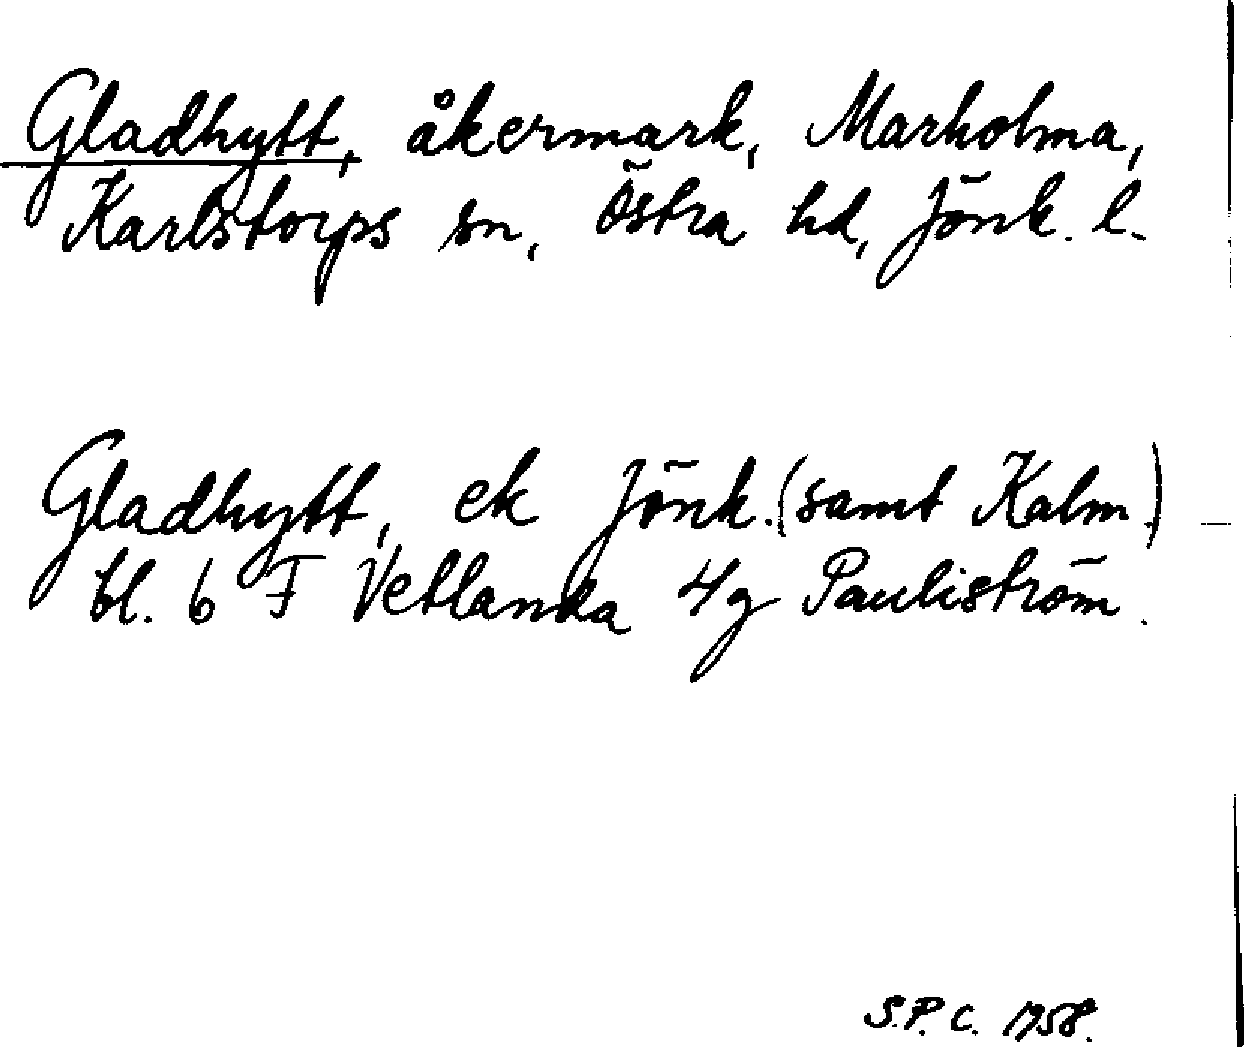 Gladhytt, åkermark, Marholma,
Karlstorps sn, Östra hd, Jönk. l.
Gladhytt, ek Jönk. (samt Kalm.)
bl. 6 F Vetlanda 4g Pauliström.
S.P.C. 1958.